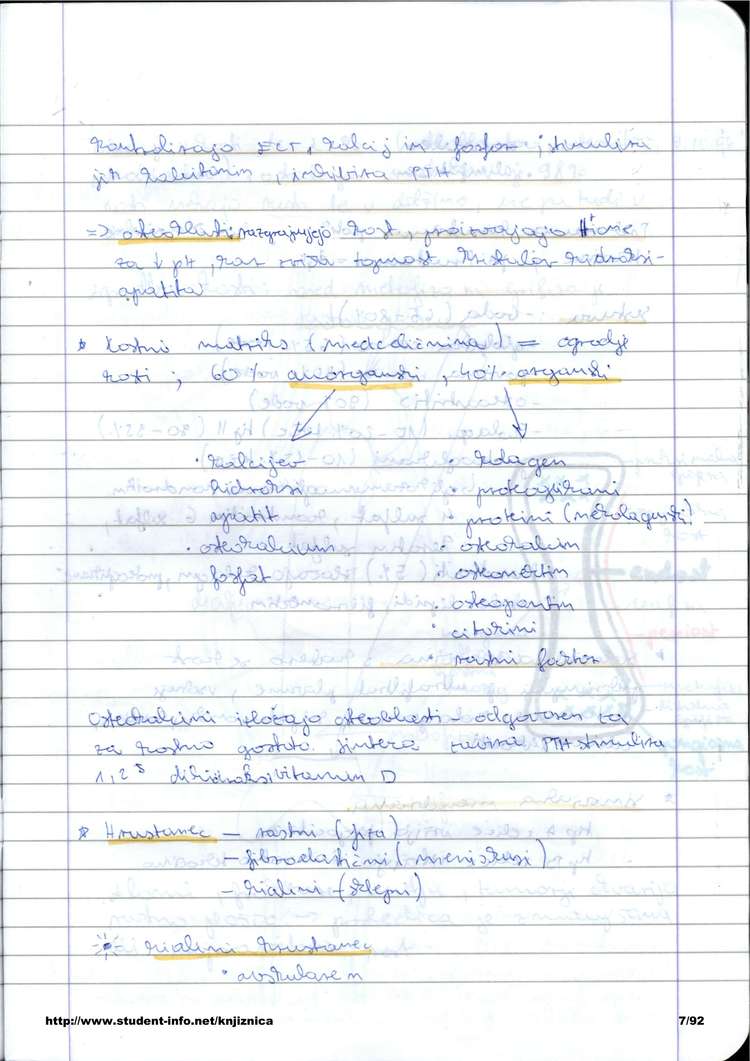 kontrolirajo ECT, kalcij in fosfor; stimulira
jih kalcitonin, inhibira PTH
=> osteoklasti: razgrajujejo kost, proizvajajo H+ ione
za ↓ pH, kar viša topnost kristalov hidroksi-
apatita
* kostni matriks (medceličnina) = ogrodje
kosti; 60% anorganski, 40% organski
• kalcijev
hidroksi
apatit
• osteokalcium
fosfat
• kolagen
• proteoglikani
• proteini (nekolagenski)
• osteokalcin
• osteonektin
• osteopontin
• citokini
• rastni faktor
Osteokalcini izločajo osteoblasti - odgovoren za
za kostno gostoto. Sinteza PTH stimulira
1,25 dihidroksivitamin D
* Hrustanec - rastni (fiza)
- fibroelastični (meniskusi)
- hialini - (sklepni)
hialini hrustanec
• avskularen